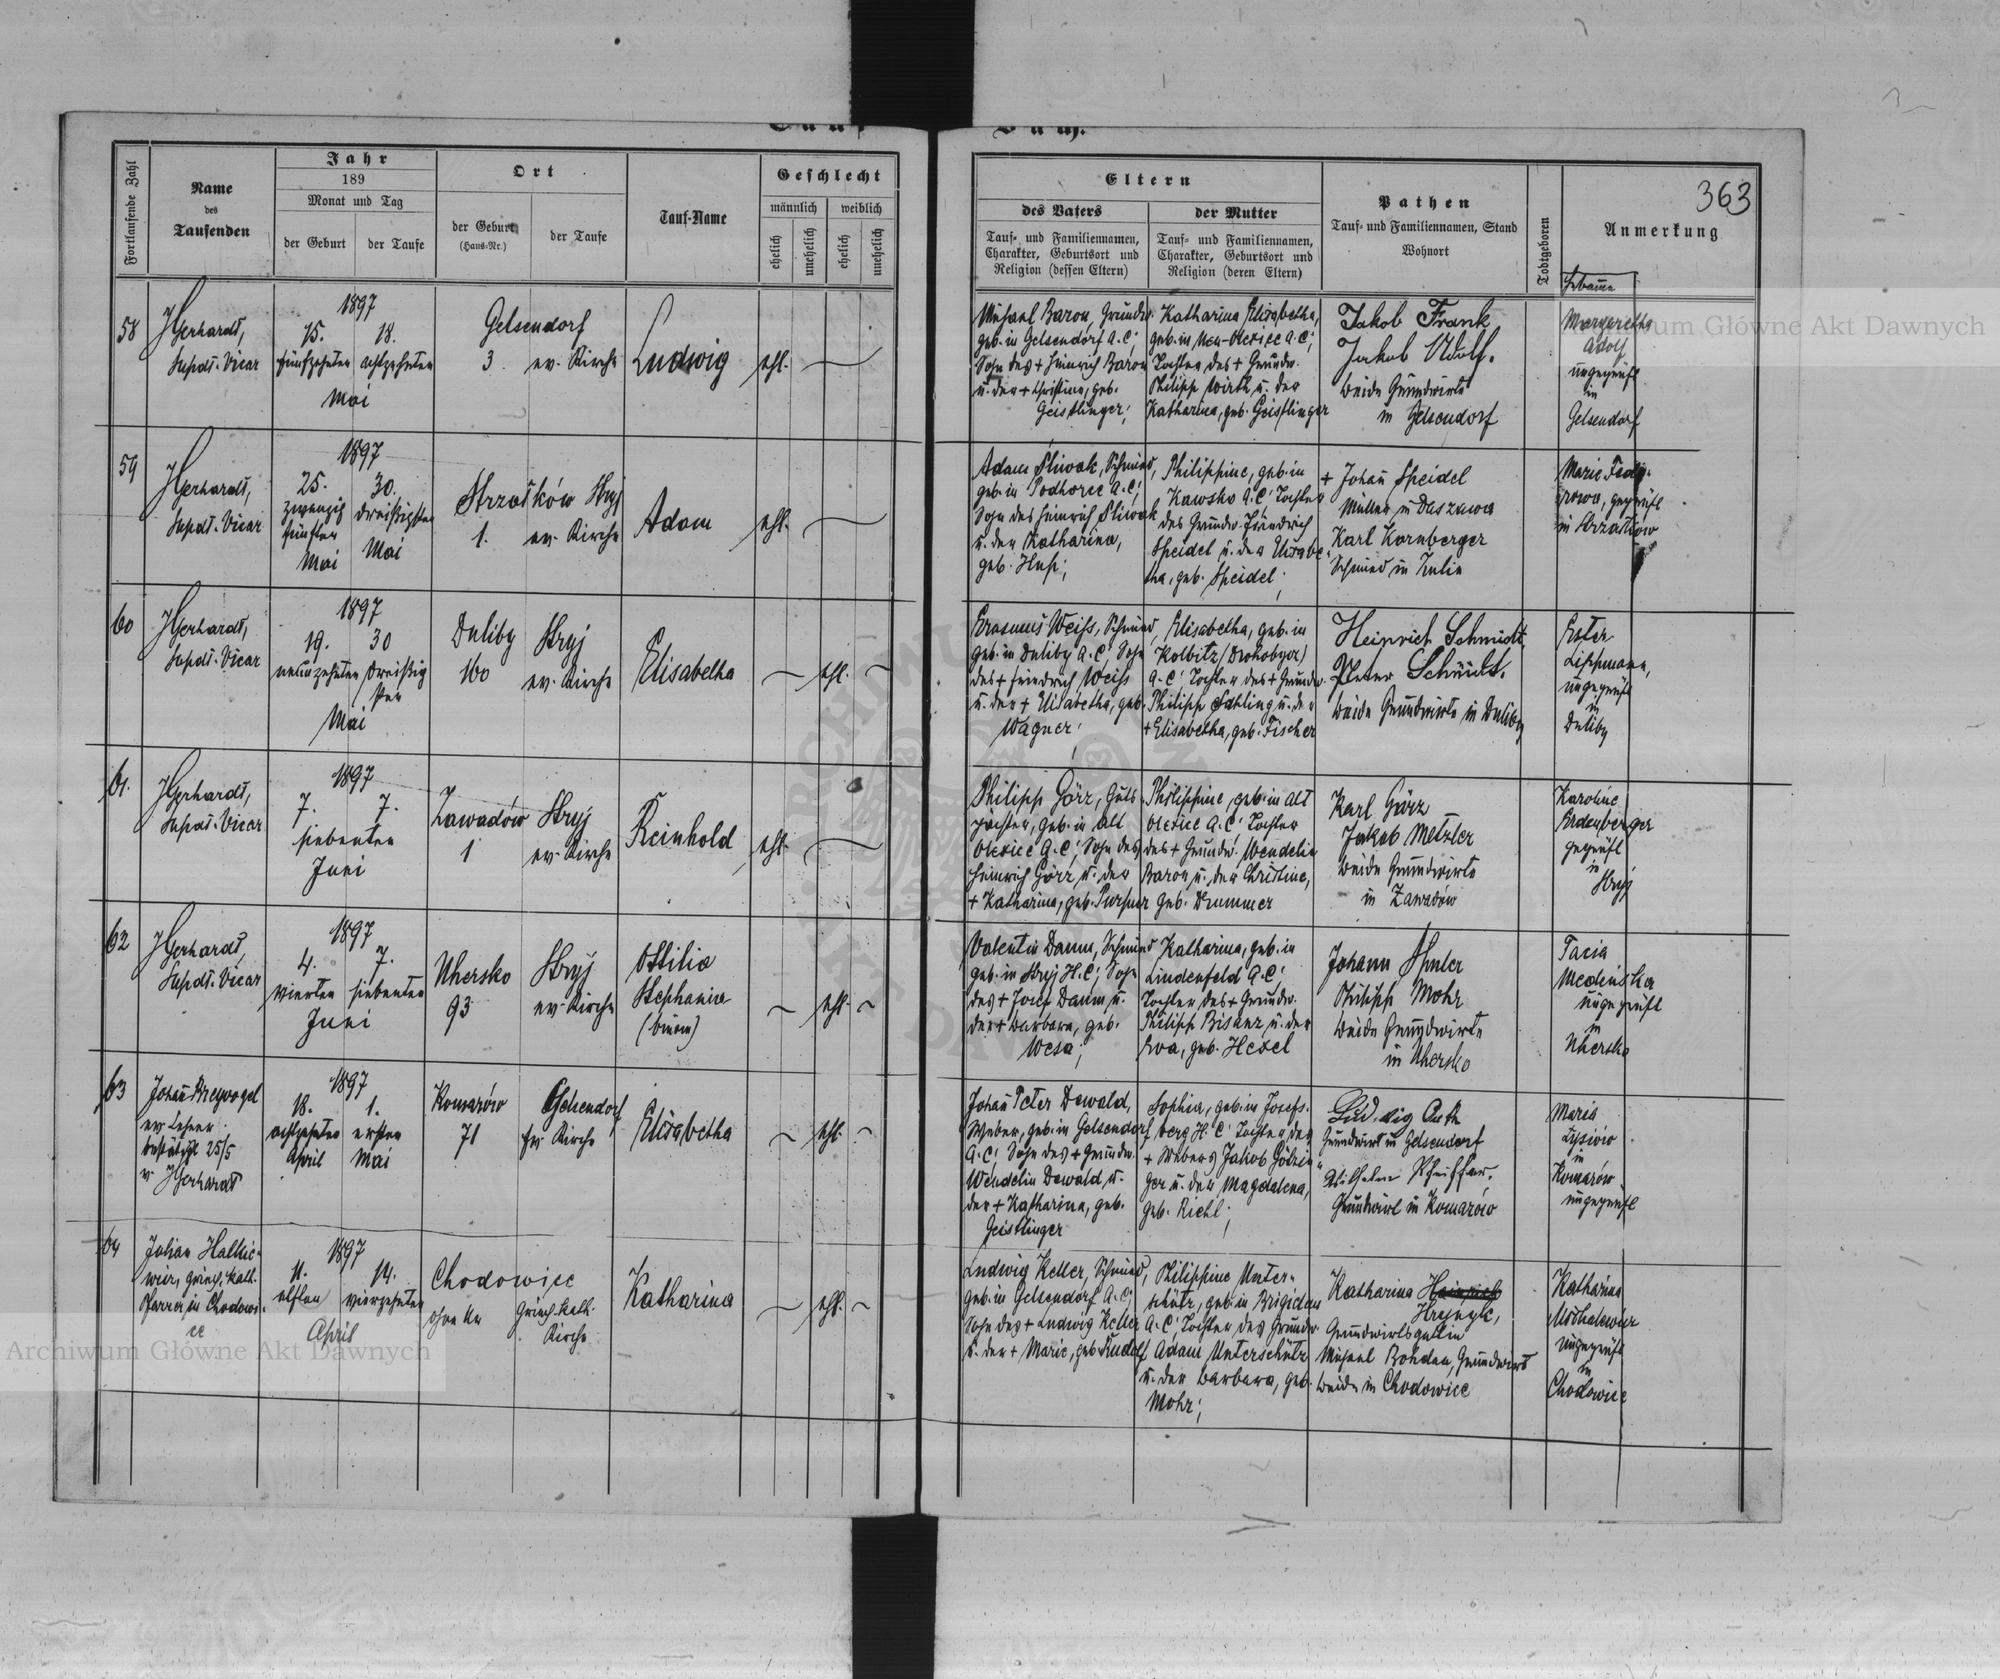 Tauf
Buch.
363
Fortlaufende Zahl
Name
des
Taufenden
Jahr
189
Monat und Tag
der Geburt
der Taufe
Ort
der Geburt
(Haus-Nr.)
der Taufe
Tauf-Name
Geschlecht
männlich
weiblich
ehelich
unehelich
ehelich
unehelich
Eltern
des Vaters
Tauf- und Familiennamen,
Charakter, Geburtsort und
Religion (dessen Eltern)
der Mutter
Tauf- und Familiennamen,
Charakter, Geburtsort und
Religion (deren Eltern)
Pathen
Tauf- und Familiennamen, Stand
Wohnort
Todtgeboren
Anmerkung
Hebamme
58
JGerhardt,
Supdt. Vicar
1897
15.
fünfzehnten
18.
achtzehnten
Mai
Gelsendorf
3
ev. Kirche
Ludwig
ehl.
Michael Baron, Grundw.
geb. in Gelsendorf A.C;
Sohn des + Heinrich Baron
u. der + Christine, geb.
Geistlinger;
Katharina Elisabetha,
geb. in Neu-Olexice A.C;
Tochter des + Grundw.
Philipp Wirth u. der
Katharina, geb. Geistlinger
Jakob Frank
Jakob Adolf.
beide Grundwirte
in Gelsendorf
Margaretha
Adolf
ungeprüft
in
Gelsendorf
59
JGerhardt,
Supdt. Vicar
1897
25.
zwanzig
fünften
Mai
30.
dreißigsten
Mai
Strzałków
1.
Stryj
ev. Kirche
Adam
ehl.
Adam Sliwak, Schmied,
geb. in Podhorce A.C;
Sohn des Heinrich Sliwak
u. der Katharina,
geb. Huß;
Philippine, geb. in
Kawsko A.C; Tochter
des Grundw. Friedrich
Speidel u. der Elisabe-
tha, geb. Speidel;
+ Johan Speidel
Müller in Daszawa
Karl Kornberger
Schmied in Zulin
Marie
geprüft
in Strzałków
60
JGerhardt,
Supdt. Vicar
1897
19.
neunzehnten
30
dreißig
sten
Mai
Duliby
160
Stryj
ev. Kirche
Elisabetha
ehl.
Erasmus Weiss, Schmied,
geb. in Duliby A.C; Sohn
des + Friedrich Weiss
u. der + Elisabetha, geb.
Wagner;
Elisabetha, geb. in
Kolbitz (Drohobycz)
A.C; Tochter des + Grundw.
Philipp Sahling u. der
+ Elisabetha, geb. Fischer
Heinrich Schmidt
Peter Schmidt.
beide Grundwirte in Duliby
Ester
Lippmann,
ungeprüft
in
Duliby
61.
JGerhardt,
Supdt. Vicar
1897
7.
7.
siebenten
Juni
Zawadów
1
Stryj
ev. Kirche
Reinhold
ehl.
Philipp Görz, Guts
pächter, geb. in Alt
Olexice A.C; Sohn des
Heinrich Görz u. der
+ Katharina, geb. Purper
Philippine, geb. in Alt
Olexice A.C; Tochter
des + Grundw. Wendelin
Baron u. der Christine,
geb. Drummer
Karl Görz
Jakob Metzler
beide Grundwirte
in Zawadów
Karoline
Erdenberger
geprüft
in
Stryj
62
JGerhardt,
Supdt. Vicar
1897
4.
vierten
7.
siebenten
Juni
Uhersko
93
Stryj
ev. Kirche
Ottilie
Stephanie
ehl.
Valentin Daum, Schmied
geb. in Stryj H.C; Sohn
des + Josef Daum u.
der + Barbara, geb.
Wesa;
Katharina, geb. in
Lindenfeld A.C;
Tochter des + Grundw.
Philipp Bisanz u. der
Eva, geb. Hexel
Johann
Philipp Mohr
beide Grundwirte
in Uhersko
Tacia
ungeprüft
in
Uhersko
63
Johan Breyvogel
ev. Lehrer
bestätigt 25/5
v JGerhardt
1897
18.
achtzehnten
April
1.
ersten
Mai
Komarów
71
Gelsendorf
ev. Kirche
Elisabetha
ehl.
Johan Peter Dewald,
Weber, geb. in Gelsendorf
A.C; Sohn des + Grundw.
Wendelin Dewald, u.
der + Katharina, geb.
Geistlinger
Sophia, geb. in Josefs-
berg H.C; Tochter des
+ Webers Jakob
ger u. der Magdalena,
geb. Riehl;
Ludwig
Grundwirt in Gelsendorf
Wilhelm Pfeiffer.
Grundwirt in Komarów
Maria
in
Komarów
ungeprüft
64
Julian
griech. kath.
Pfarrer in Chodowi-
ce
1897
11.
elften
14.
vierzehnten
April
Chodowice
ohne Nr
Griech. kath.
Kirche
Katharina
ehl.
Ludwig Keller, Schmied,
geb. in Gelsendorf A.C;
Sohn des + Ludwig Keller
u. der + Marie, geb. Rudolf
Philippine Unter-
schütz, geb. in Brigidau
A.C; Tochter des Grundw.
Adam Unterschütz
u. der Barbara, geb.
Mohr;
Katharina
Grundwirtsgattin
Michael Bohdan, Grundwirt
beide in Chodowice
Katharina
ungeprüft
in
Chodowice
Archiwum Główne Akt Dawnych
Archiwum Główne Akt Dawnych